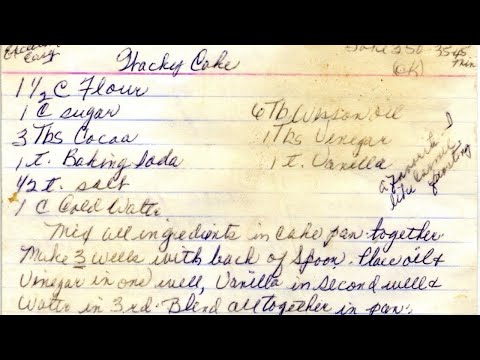 Excellent
Easy
Wacky Cake
Bake 350 - 35-45
min
(OK)
1 1/2 C Flour
1 C sugar
6 Tb Wesson oil
3 Tbs Cocoa
1 Tbs Vinegar
1 t. Baking Soda
1 t. Vanilla
1/2 t. salt
1 C Cold Water
a Favorite I
like
frosting
Mix all ingredients in cake pan together.
Make 3 wells with back of spoon. Place oil &
Vinegar in one well, Vanilla in second well &
Water in 3rd. Blend altogether in pan.